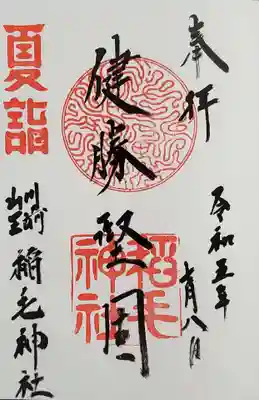 奉拝
令和五年
七月八日
健勝堅固
稲毛神社
夏詣
川崎
山王
稲毛神社